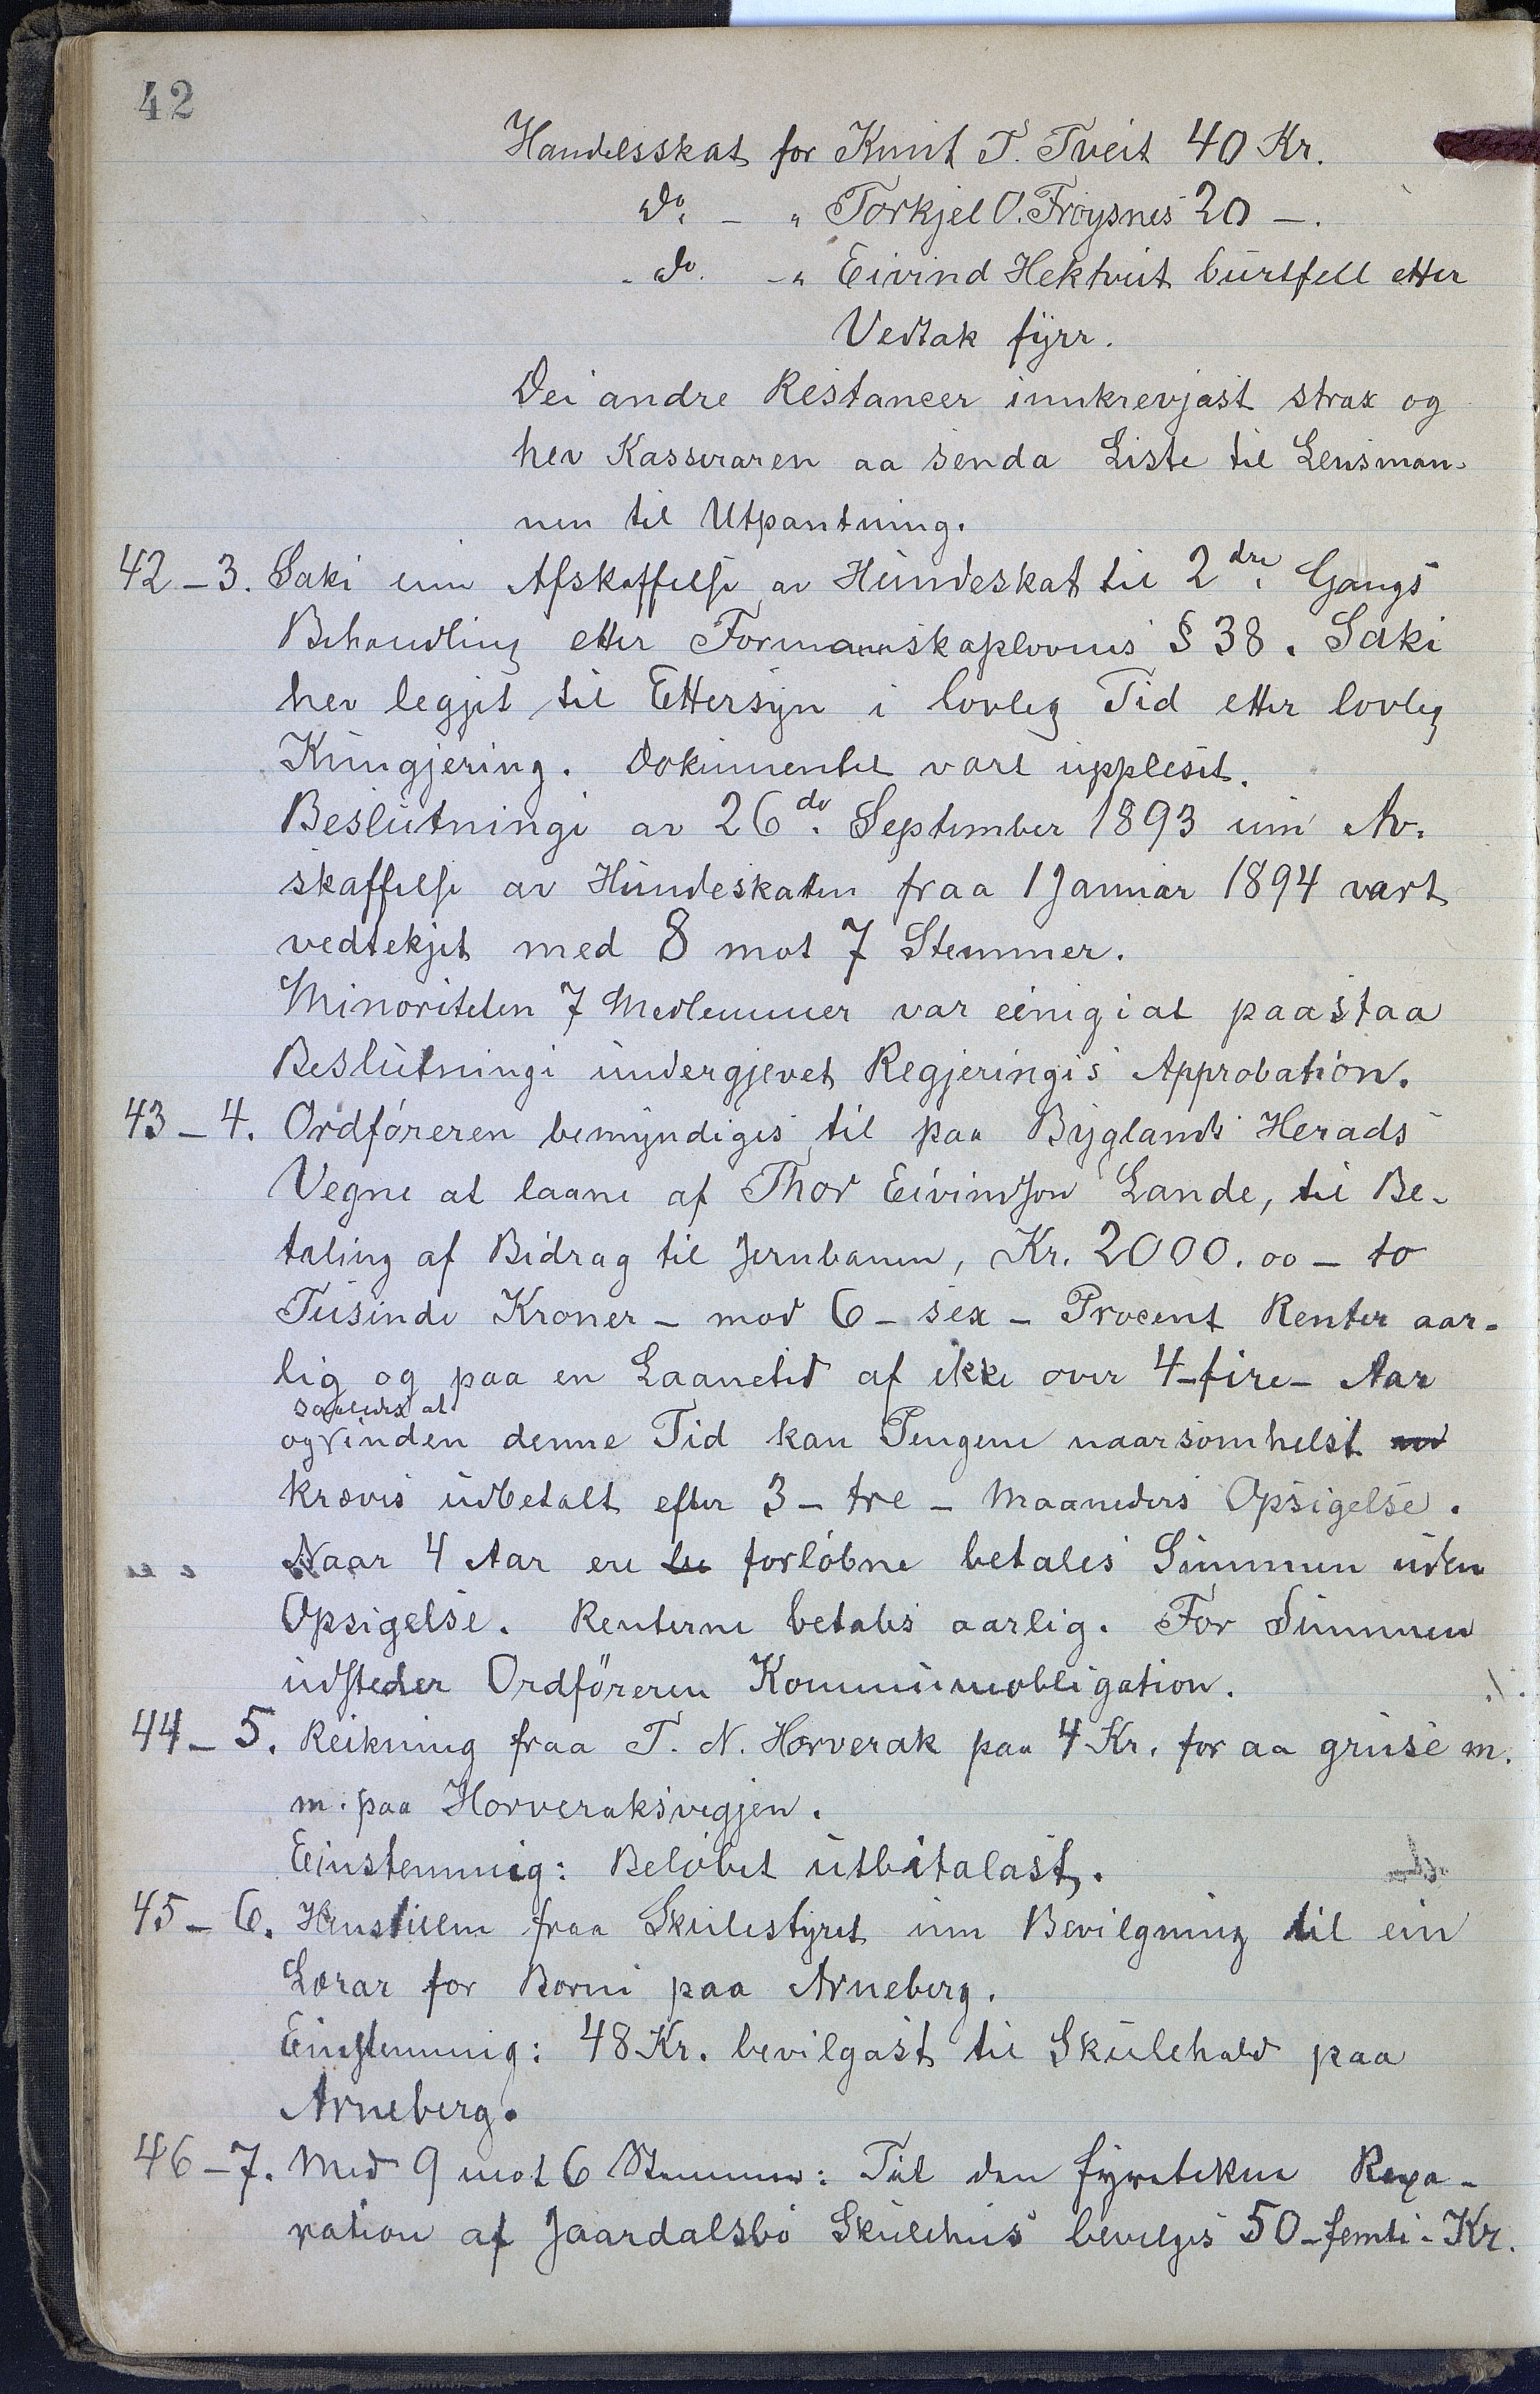 42
Handelsskat for Knut T. Tveit 40 Kr.
do. - " Torkjel O. Frøysnes 20 -.
- do. - " Eivind Hektveit burtfell etter
Vedtak fyrr.
Dei andre Restancer innkrevjast strax og
hev Kasseraren aa senda Liste til Lensman-
nen til Utpantning.
42-3. Saki um Afskaffelse av Hundeskat til 2dre Gangs
Behandling etter Formannskaplovens § 38. Saki
hev legjet til Ettersyn i lovleg Tid etter lovleg
Kungjering. Dokumentet vart upplesit.
Beslutningi av 26de September 1893 um Av-
skaffelse av Hundeskatten fraa 1 Januar 1894 vart
vedtekjet med 8 mot 7 Stemmer.
Minoriteten 7 Medlemmer var einig i at paastaa
Beslutningi undergjevet Regjeringis Approbation.
43-4. Ordføreren bemyndiges til paa Byglands Herads
Vegne at laane af Thor Eivindson Lande, til Be-
taling af Bidrag til Jernbanen, Kr. 2000.00 - to
Tusinde Kroner - mod 6 - sex - Procent Renter aar-
lig og paa en Laanetid af ikke over 4 - fire - Aar
saaledes at
og inden denne Tid kan Pengene naarsomhelst
kræves udbetalt efter 3 - tre - Maaneders Opsigelse.
Naar 4 Aar ere forløbne betales Summen uden
Opsigelse. Renterne betales aarlig. For Summen
udsteder Ordføreren Kommuneobligation.
44-5. Reikning fraa T. N. Horverak paa 4 Kr. for aa gruse m.
m. paa Horveraksvegjen.
Einstemmig: Beløbet utbetalast.
45-6. Henstillen fraa Skulestyret um Bevilgning til ein
Lærar for Borni paa Arneberg.
Einstemmig: 48 Kr. bevilgast til Skulehald paa
Arneberg.
46-7. Med 9 mot 6 Stemmer: Til den fyretekne Repa-
ration af Jaardalsbø Skulehus bevilges 50 - femti - Kr.